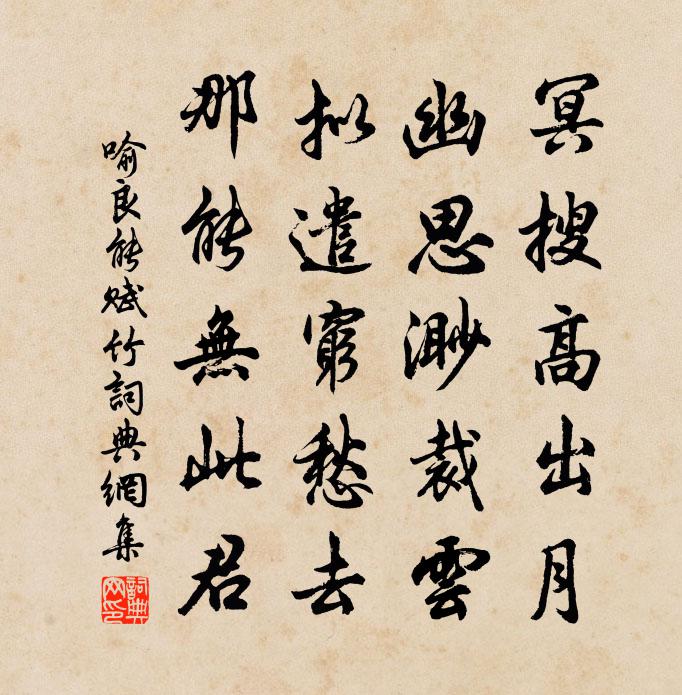 冥搜高出月
幽思渺裁雲
拟遣窮愁去
那能無此君
喻良能赋竹詞典網集
詞典网印